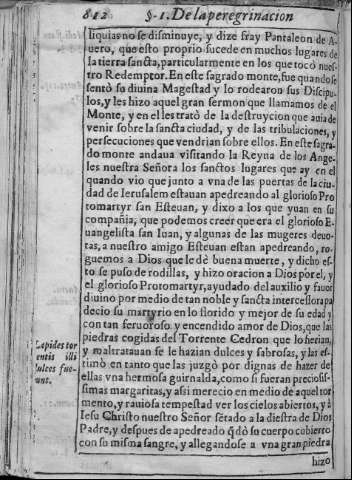 812 §.1. De la peregrinacion
liquias no se disminuye, y dize fray Pantaleon de A-
uero, que esto proprio sucede en muchos lugares de
la tierra sancta, particularmente en los que tocò nues
tro Redemptor. En este sagrado monte, fue quando se
sentò su diuina Magestad y lo rodearon sus Discipu
los, y les hizo aquel gran sermon que llamamos de el
Monte, y en el les tratò de la destruycion que auia de
venir sobre la sancta ciudad, y de las tribulaciones, y
persecuciones que vendrian sobre ellos. En este sagra
do monte andaua visitando la Reyna de los Ange-
les nuestra Señora los sanctos lugares que ay en el
quando vio que junto a vna de las puertas de la ciu-
dad de Ierusalem estauan apedreando al glorioso Pro
tomartyr san Esteuan, y dixo a los que yuan en su
compañia, que podemos creer que era el glorioso E-
uangelista san Iuan, y algunas de las mugeres deuo-
tas, a nuestro amigo Esteuan estan apedreando, ro-
guemos a Dios que le dè buena muerte, y dicho es-
to se puso de rodillas, y hizo oracion a Dios por el, y
el glorioso Protomartyr, ayudado del auxilio y fauor
diuino por medio de tan noble y sancta intercessora pa
decio su martyrio en lo florido y mejor de su edad y
con tan feruoroso y encendido amor de Dios, que las
piedras cogidas del Torrente Cedron que lo herian,
y maltratauan se le hazian dulces y sabrosas, y las es-
timò en tanto que las juzgò por dignas de hazer de
ellas vna hermosa guirnalda, como si fueran preciosis-
simas margaritas, y assi merecio en medio de aquel tor
mento, y rauiosa tempestad ver los cielos abiertos, y à
Iesu Christo nuestro Señor sẽtado a la diestra de Dios
Padre, y despues de apedreado q̃dò su cuerpo cubierto
con su misma sangre, y allegandose a vna gran piedra
hizo
Lapides tor
entis illi
dulces fue-
unt.